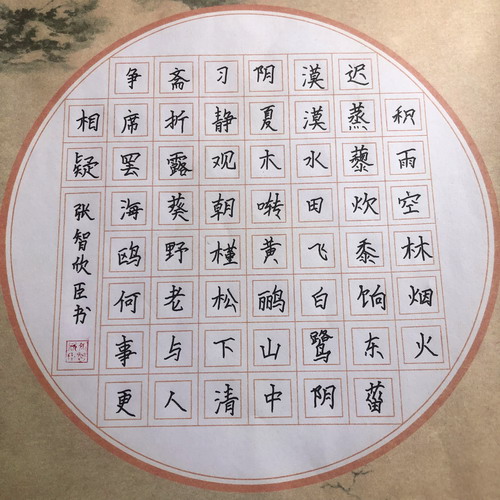 积雨空林烟火
迟蒸藜炊黍饷东菑
漠漠水田飞白鹭阴
阴夏木啭黄鹂山中
习静观朝槿松下清
斋折露葵野老与人
争席罢海鸥何事更
相疑
张智欣臣书